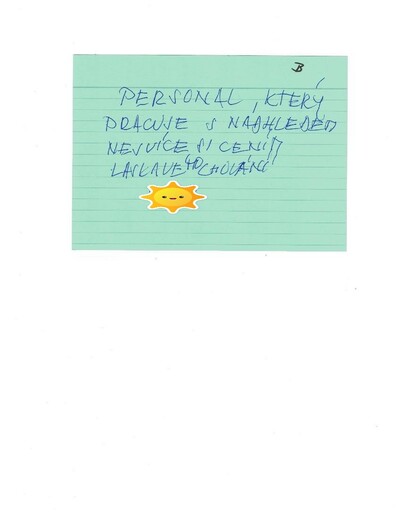 B
PERSONAL, KTERÝ
PRACUJE S NADHLEDEM
NEJVÍCE SI CENÍM
LASKAVÉHO CHOVÁNÍ